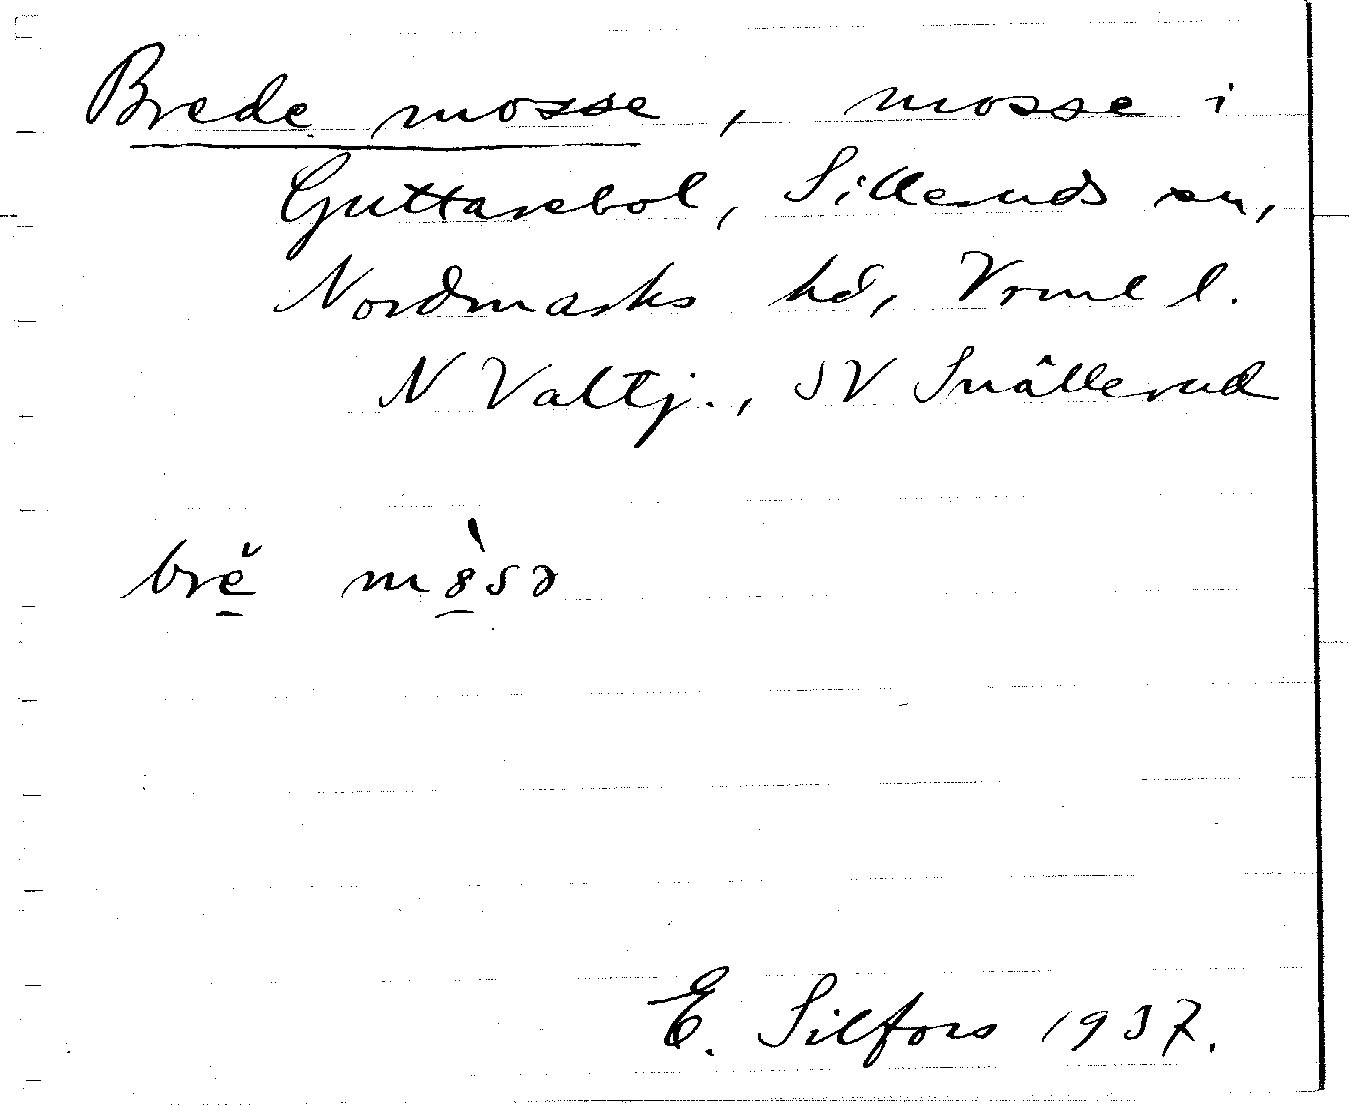 Brede mosse, mosse i
Guttarebol, Silleruds sn,
Nordmarks hd, Vrml l.
N Valtj., SV Snällerud
brĕ mo̍sə
E. Silfors 1937.